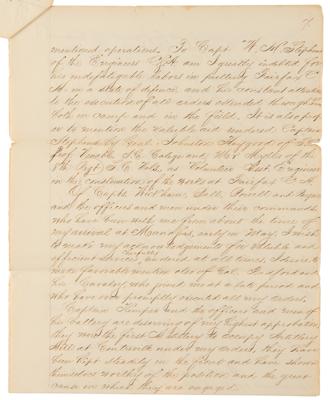 7
mentioned operations. To Capt. W. H. Stephens
of the Engineers C.S.A. am I greatly indebted for
his indefatigable labors in putting Fairfax C.
H. in a state of defence, and his constant attention
to the execution of all orders attended through
both in camp and in the field. It is also
to mention the valuable aid rendered Captain
Stephens by Col. Johnston Hagood of
Prof. Venable So. Ca. College and
8th Regt. S.C. Vols, as Volunteer Asst. Engineers
in the construction of the works at Fairfax C. H.
Of Capts. Ball, Powell and Payne
and the officers and men under their commands
who have been with me from about the time of
my arrival at Manassas, early in May, I wish
to make my acknowledgements for valuable and
efficient services, rendered at all times. I desire also
to favorable mention also of Col. Radford and
his Cavalry who joined me at a late period and
who have ever promptly executed all my orders.
Captain Kemper and the officers and men of
the battery are deserving of my highest approbation,
they were the first Artillery to occupy
Hill at Centreville under my orders, they have
been kept steadily in the front and have shown
themselves worthy of the position and the great
cause in which they are engaged.